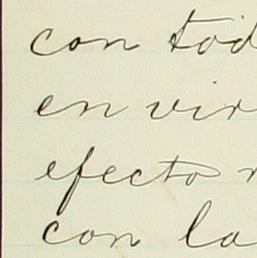 con tod
en vir
efecto
con la